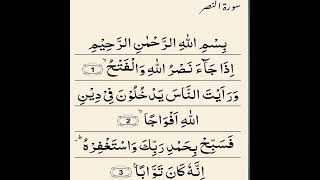 سورة النصر
بِسْمِ اللهِ الرَّحْمٰنِ الرَّحِيْمِ
اِذَا جَآءَ نَصْرُ اللهِ وَالْفَتْحُ ۙ ﴿1﴾
وَرَاَيْتَ النَّاسَ يَدْخُلُوْنَ فِيْ دِيْنِ
اللهِ اَفْوَاجًا ۙ ﴿2﴾
فَسَبِّحْ بِحَمْدِ رَبِّكَ وَاسْتَغْفِرْهُ ؕ
اِنَّهٗ كَانَ تَوَّابًا ﴿3﴾